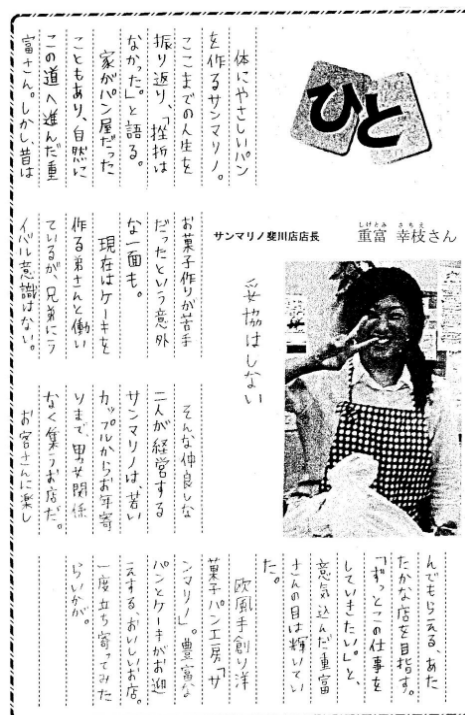 ひと
サンマリノ斐川店店長
重富 幸枝さん
しげとみ さちえ
妥協はしない
体にやさしいパン
を作るサンマリノ。
ここまでの人生を
振り返り、「挫折は
なかった。」と語る。
家がパン屋だった
こともあり、自然に
この道へ進んだ重
富さん。しかし、昔は
お菓子作りが苦手
だったという意外
な一面も。
現在はケーキを
作る弟さんと働い
ているが、兄弟にラ
イバル意識はない。
そんな仲良しな
二人が経営する
サンマリノは、若い
カップルからお年寄
りまで、男女関係
なく集うお店だ。
お客さんに楽し
んでもらえる、あた
たかな店を目指す。
「ずっとこの仕事を
していきたい。」と、
意気込んだ重富
さんの目は輝いてい
た。
欧風手創り洋
菓子パン工房「サ
ンマリノ」。豊富な
パンとケーキがお迎
えする、おいしいお店。
一度立ち寄ってみた
らいかが。